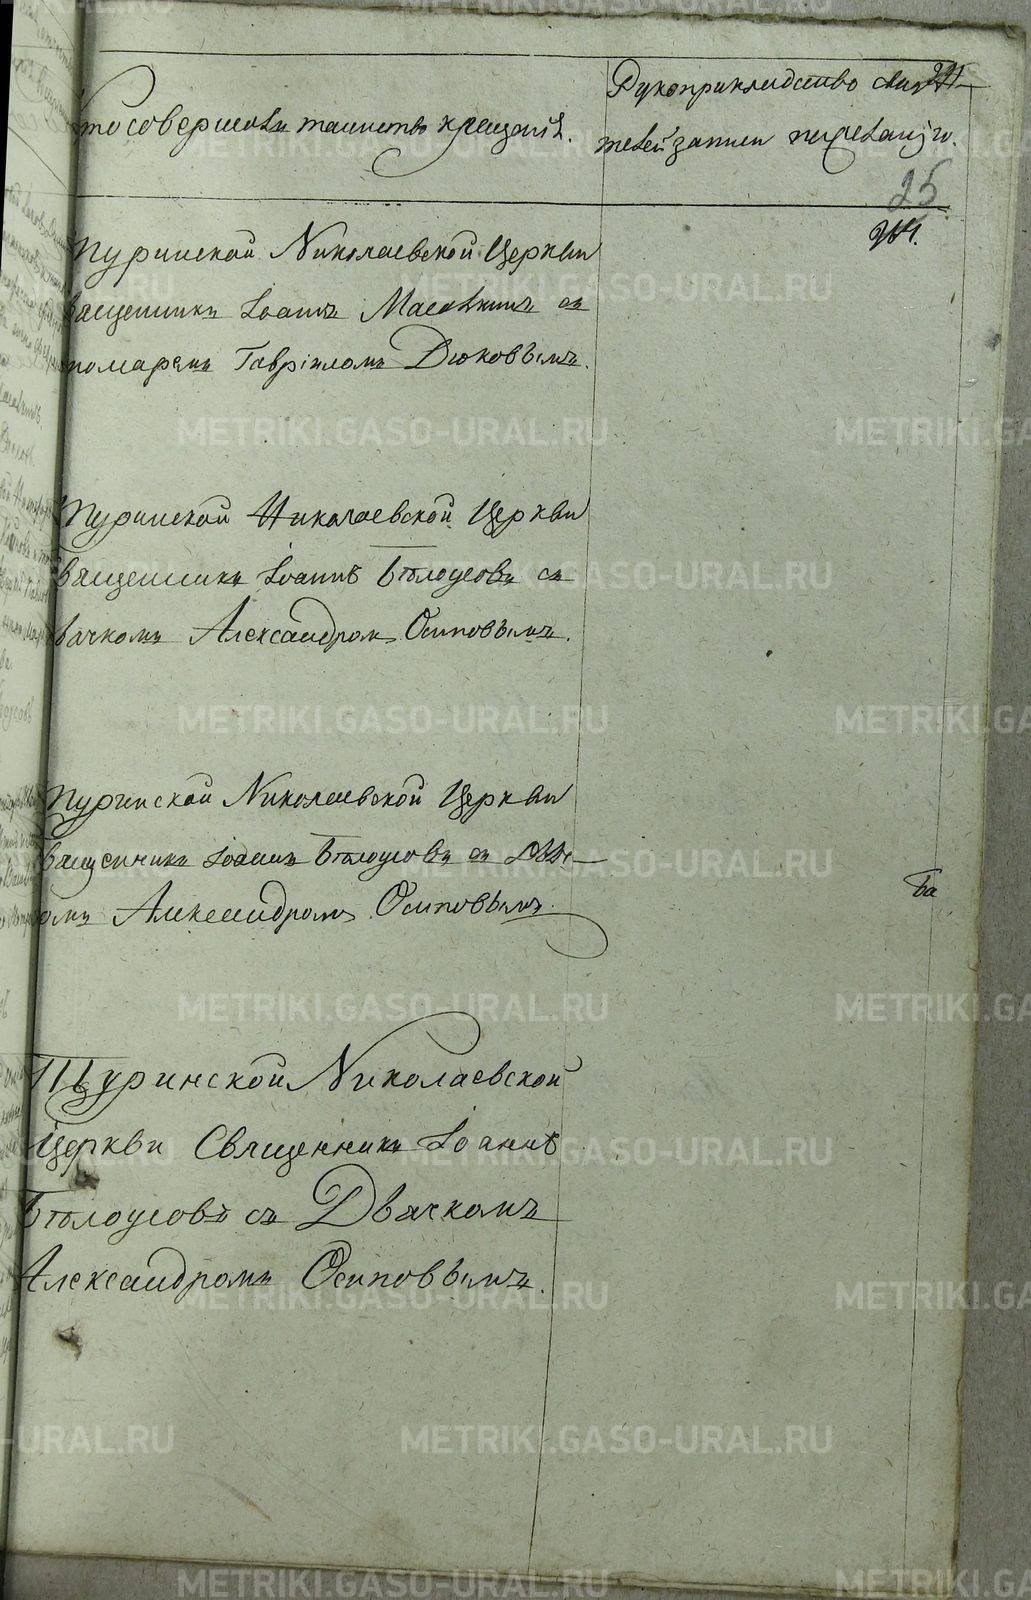 Кто совершалъ таинство крещенія.
Рукоприкладство свидѣтелей записи по желанію.
25
264.
Туринской Николаевской Церкви
Священникъ Іоаннъ Масалкинъ съ
пономаремъ Гавріиломъ Дюковымъ.
Туринской Николаевской Церкви
Священникъ Іоаннъ Бѣлоусовъ съ
дьячкомъ Александромъ Осиповымъ.
Туринской Николаевской Церкви
Священникъ Іоаннъ Бѣлоусовъ съ дьяч-
комъ Александромъ Осиповымъ.
Туринской Николаевской
Церкви Священникъ Іоаннъ
Бѣлоусовъ съ Дьячкомъ
Александромъ Осиповымъ.
METRIKI.GASO-URAL.RU